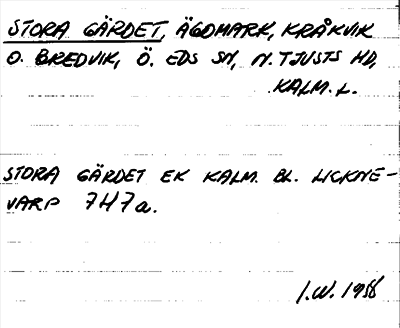 STORA GÄRDET, ÄGOMARK, KRÅKVIK
O. BREDVIK, Ö. EDS SN, N. TJUSTS HD,
KALM. L.
STORA GÄRDET EK KALM. BL. LICKNE-
VARP 747a.
I.W. 1956